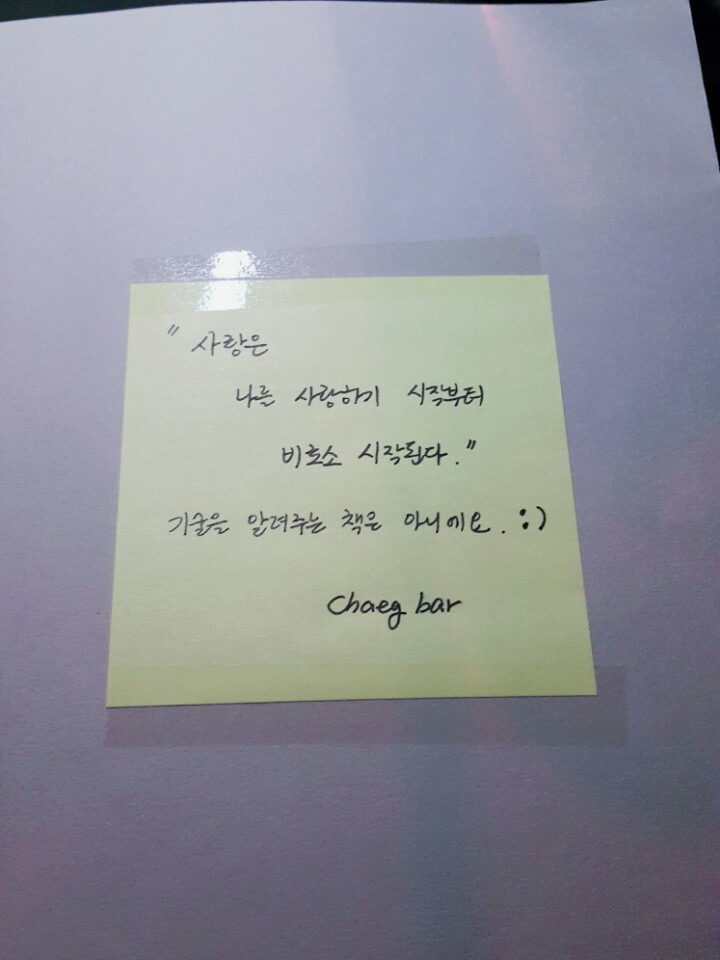 " 사랑은
나를 사랑하기 시작부터
비호소 시작된다."
기술을 알려주는 책은 아니에요. :)
Chaeg bar